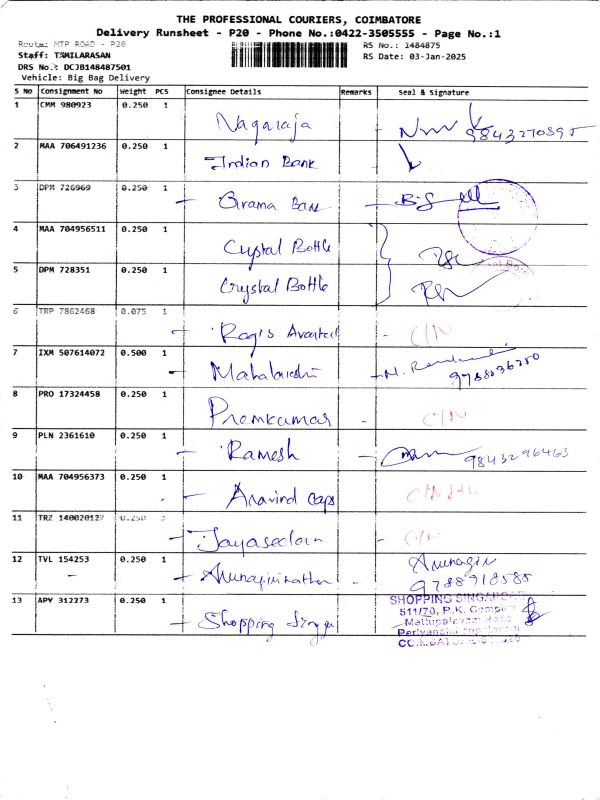 THE PROFESSIONAL COURIERS, COIMBATORE
Delivery Runsheet - P20 - Phone No.:0422-3505555 - Page No.:1
Route: MTP ROAD - P20
RS No.: 1484875
Staff: TAMILARASAN
RS Date: 03-Jan-2025
DRS No.: DCJB148487501
Vehicle: Big Bag Delivery
S No Consignment No Weight PCS Consignee Details Remarks Seal & Signature
1 CMM 980923 0.250 1 Nagaraja 9843270895
2 MAA 706491236 0.250 1 Indian Bank
3 DPM 726969 0.250 1 Grama Bank
4 MAA 704956511 0.250 1 Crystal Bottle
5 DPM 728351 0.250 1 Crystal Bottle
6 TRP 7862468 0.075 1 C/N
7 IXM 507614072 0.500 1 Mahalakshmi
8 PRO 17324458 0.250 1 Premkumar - C/N
9 PLN 2361610 0.250 1 - Ramesh - 9843296463
10 MAA 704956373 0.250 1 - Aravind caps
11 TRZ 0.250 - C/N
12 TVL 154253 0.250 1 9788918585
13 APY 312273 0.250 1 - Shopping
SHOPPING SINGAPORE
511/70, P.K. Complex
Mettupalayam Road